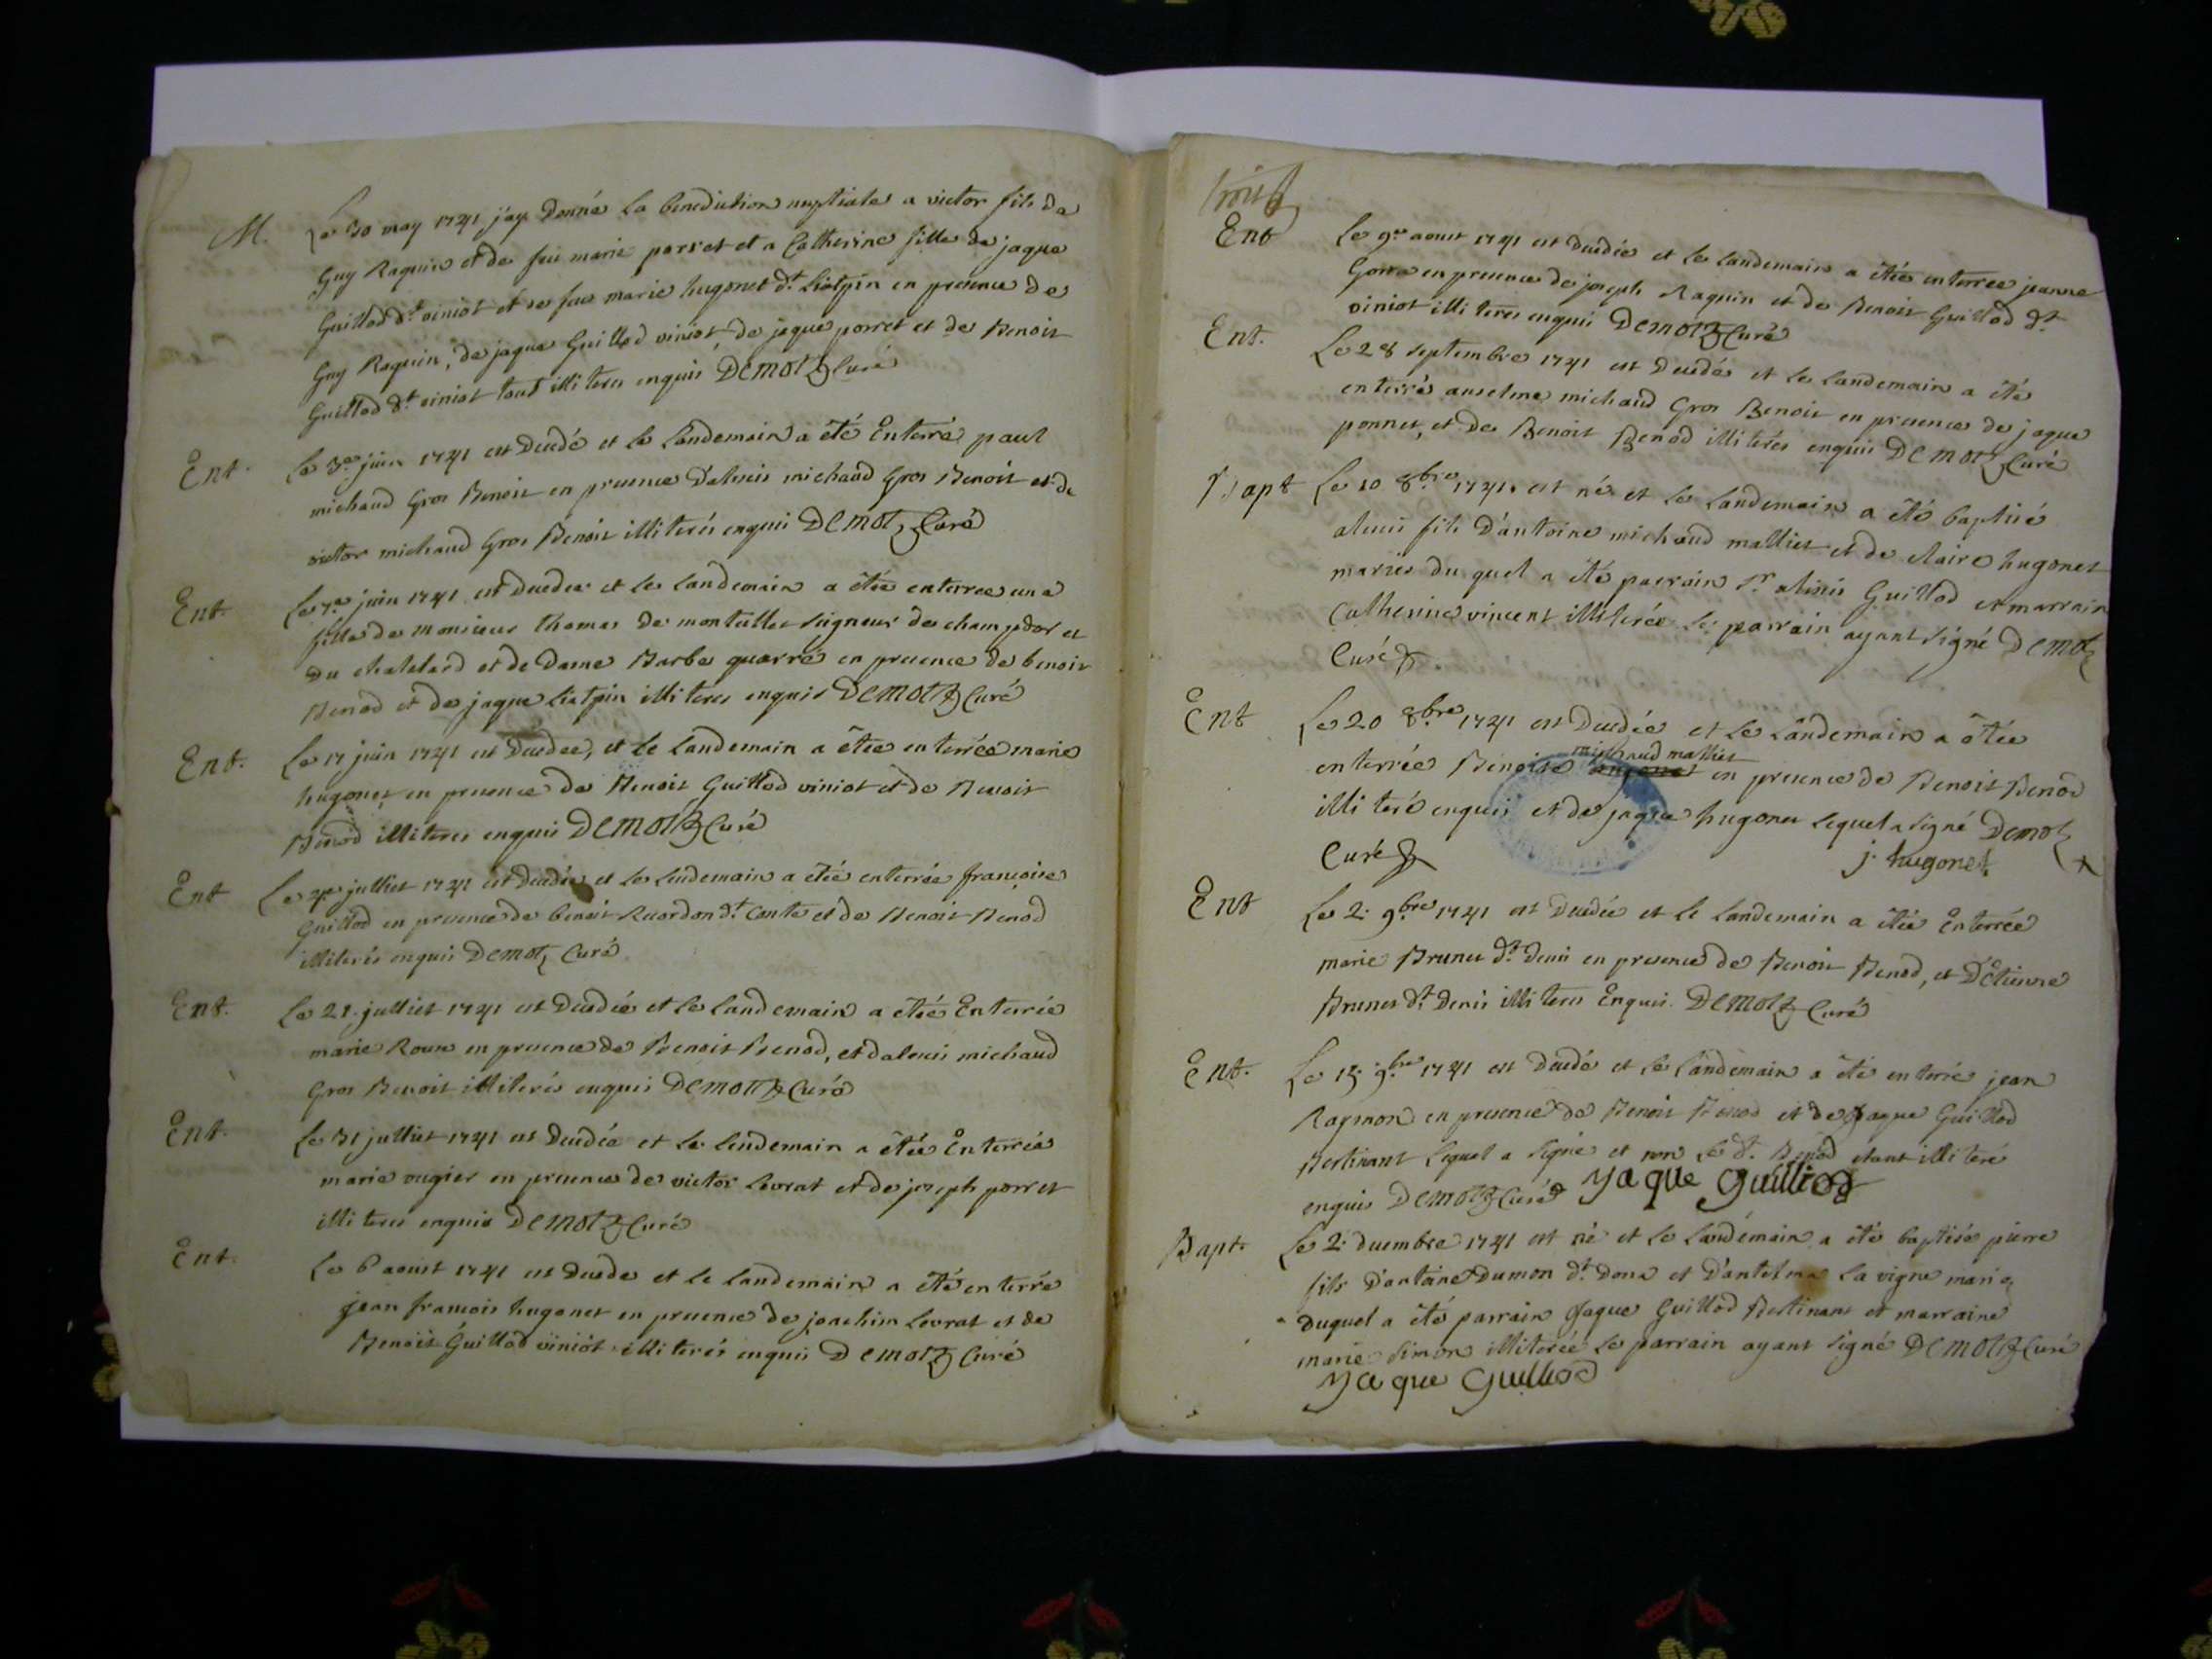 M. Le 30 may 1741 j'ay donné la benediction nuptiale a victor fils de
Guy Raquin et de feu marie porret et a Catherine fille de jaque
Guillod dt. viniot et de feue marie hugonet dt. Liatpin en presence de
Guy Raquin, de jaque Guillod viniot, de jaque porret et de Benoit
Guillod dt. viniot tous illiteres enquis Demotz Curé
Ent. Le 3e. juin 1741 est decedé et le landemain a été Enterré paul
michaud Gros Benoit en presence d'alexis michaud Gros Benoit et de
victor michaud Gros Benoit illiterés enquis Demotz Curé
Ent. Le 7e juin 1741 est decedée et le landemain a étée enterree une
fille de monsieur thomas de montillet seigneur de champdor et
du chatelard et de Dame Barbe quarré en presence de benoit
Benod et de jaque Liatpin illiteres enquis Demotz Curé
Ent. Le 17 juin 1741 est decedée, et le landemain a étée enterrée marie
hugonet en presence de Benoit Guillod viniot et de Benoit
Benod illiteres enquis Demotz Curé
Ent Le 4e julliet 1741 est decedée et le lendemain a étée enterrée françoise
Guillod en presence de benoit Reordon dt. conte et de Benoit Benod
illiterés enquis Demotz Curé
Ent. Le 21. julliet 1741 est decedée et le landemain a étée Enterrée
marie Roux en presence de Benoit Benod, et dalexis michaud
Gros Benoit illiterés enquis Demotz Curé
Ent. Le 31 julliet 1741 est decedée et le lendemain a étée Enterrée
marie rugier en presence de victor Levrat et de joseph porret
illiteres enquis Demotz Curé
Ent. Le 6 aoust 1741 est decede et le landemain a été enterré
jean francois hugonet en presence de joachim Levrat et de
Benoit Guillod viniot illiterés enquis Demotz Curé
Ent Le 9e aoust 1741 est decedée et le landemain a étée enterree jeanne
Gorra en presence de joseph Raquin et de Benoit Guillod dt.
viniot illiteres enquis Demotz Curé
Ent. Le 28 septembre 1741 est decedé et le landemain a été
enterré anselme michaud Gros Benoit en presence de jaque
ponnet, et de Benoit Benod illiterés enquis Demotz Curé
Bapt Le 10 8bre 1741. est né et le landemain a été baptisé
alexis fils d'antoine michaud malliet et de claire hugonet
mariés du quel a été parrain sr. alexis Guillod et marraine
Catherine vincent illiterée le parrain ayant signé Demotz
Curé
Ent Le 20 8bre 1741 est decedée et le landemain a étée
michaud malliet
enterrée Benoite en presence de Benoit Benod
illiteré enquis et de jaque hugonet lequel a signé Demotz
Curé j. hugonet
Ent Le 2. 9bre 1741 est decedée et le landemain a étée Enterrée
marie Brunet dt. denis en presence de Benoit Benod, et D'Etienne
Brunet dt. denis illiteres Enquis. Demotz Curé
Ent. Le 15. 9bre 1741 est decedé et le landemain a été enterré jean
Raymon en presence de Benoit Benod et de Jaque Guillod
Bertinant lequel a signé et non le dt. Benod etant illiteré
enquis Demotz Curé yaque guilliod
Bapt. Le 2. decembre 1741 est né et le landemain a été baptisé pierre
fils d'antoine Dumon dt. Dona et D'antelma La vigne mariés
duquel a été parrain Jaque Guillod Bertinant et marraine
marie Simon illiterée le parrain ayant signé Demotz Curé
yaque Guilliod